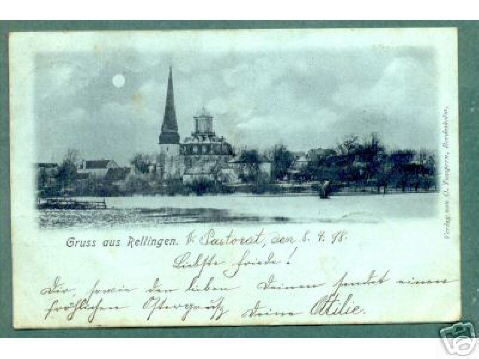 Gruss aus Rellingen. Pastorat, den 8. 4. 98.
Liebste Frieda!
Dir, sowie den lieben Deinen sendet einen
fröhlichen Ostergruß Deine Ottilie.
Verlag von